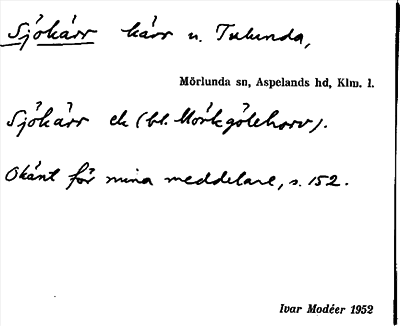 Sjökärr kärr u. Tulunda,
Mörlunda sn, Aspelands hd, Klm. l.
Sjökärr ek (bl. Mörkgölehorv).
Okänt för mina meddelare, s. 152.
Ivar Modéer 1952